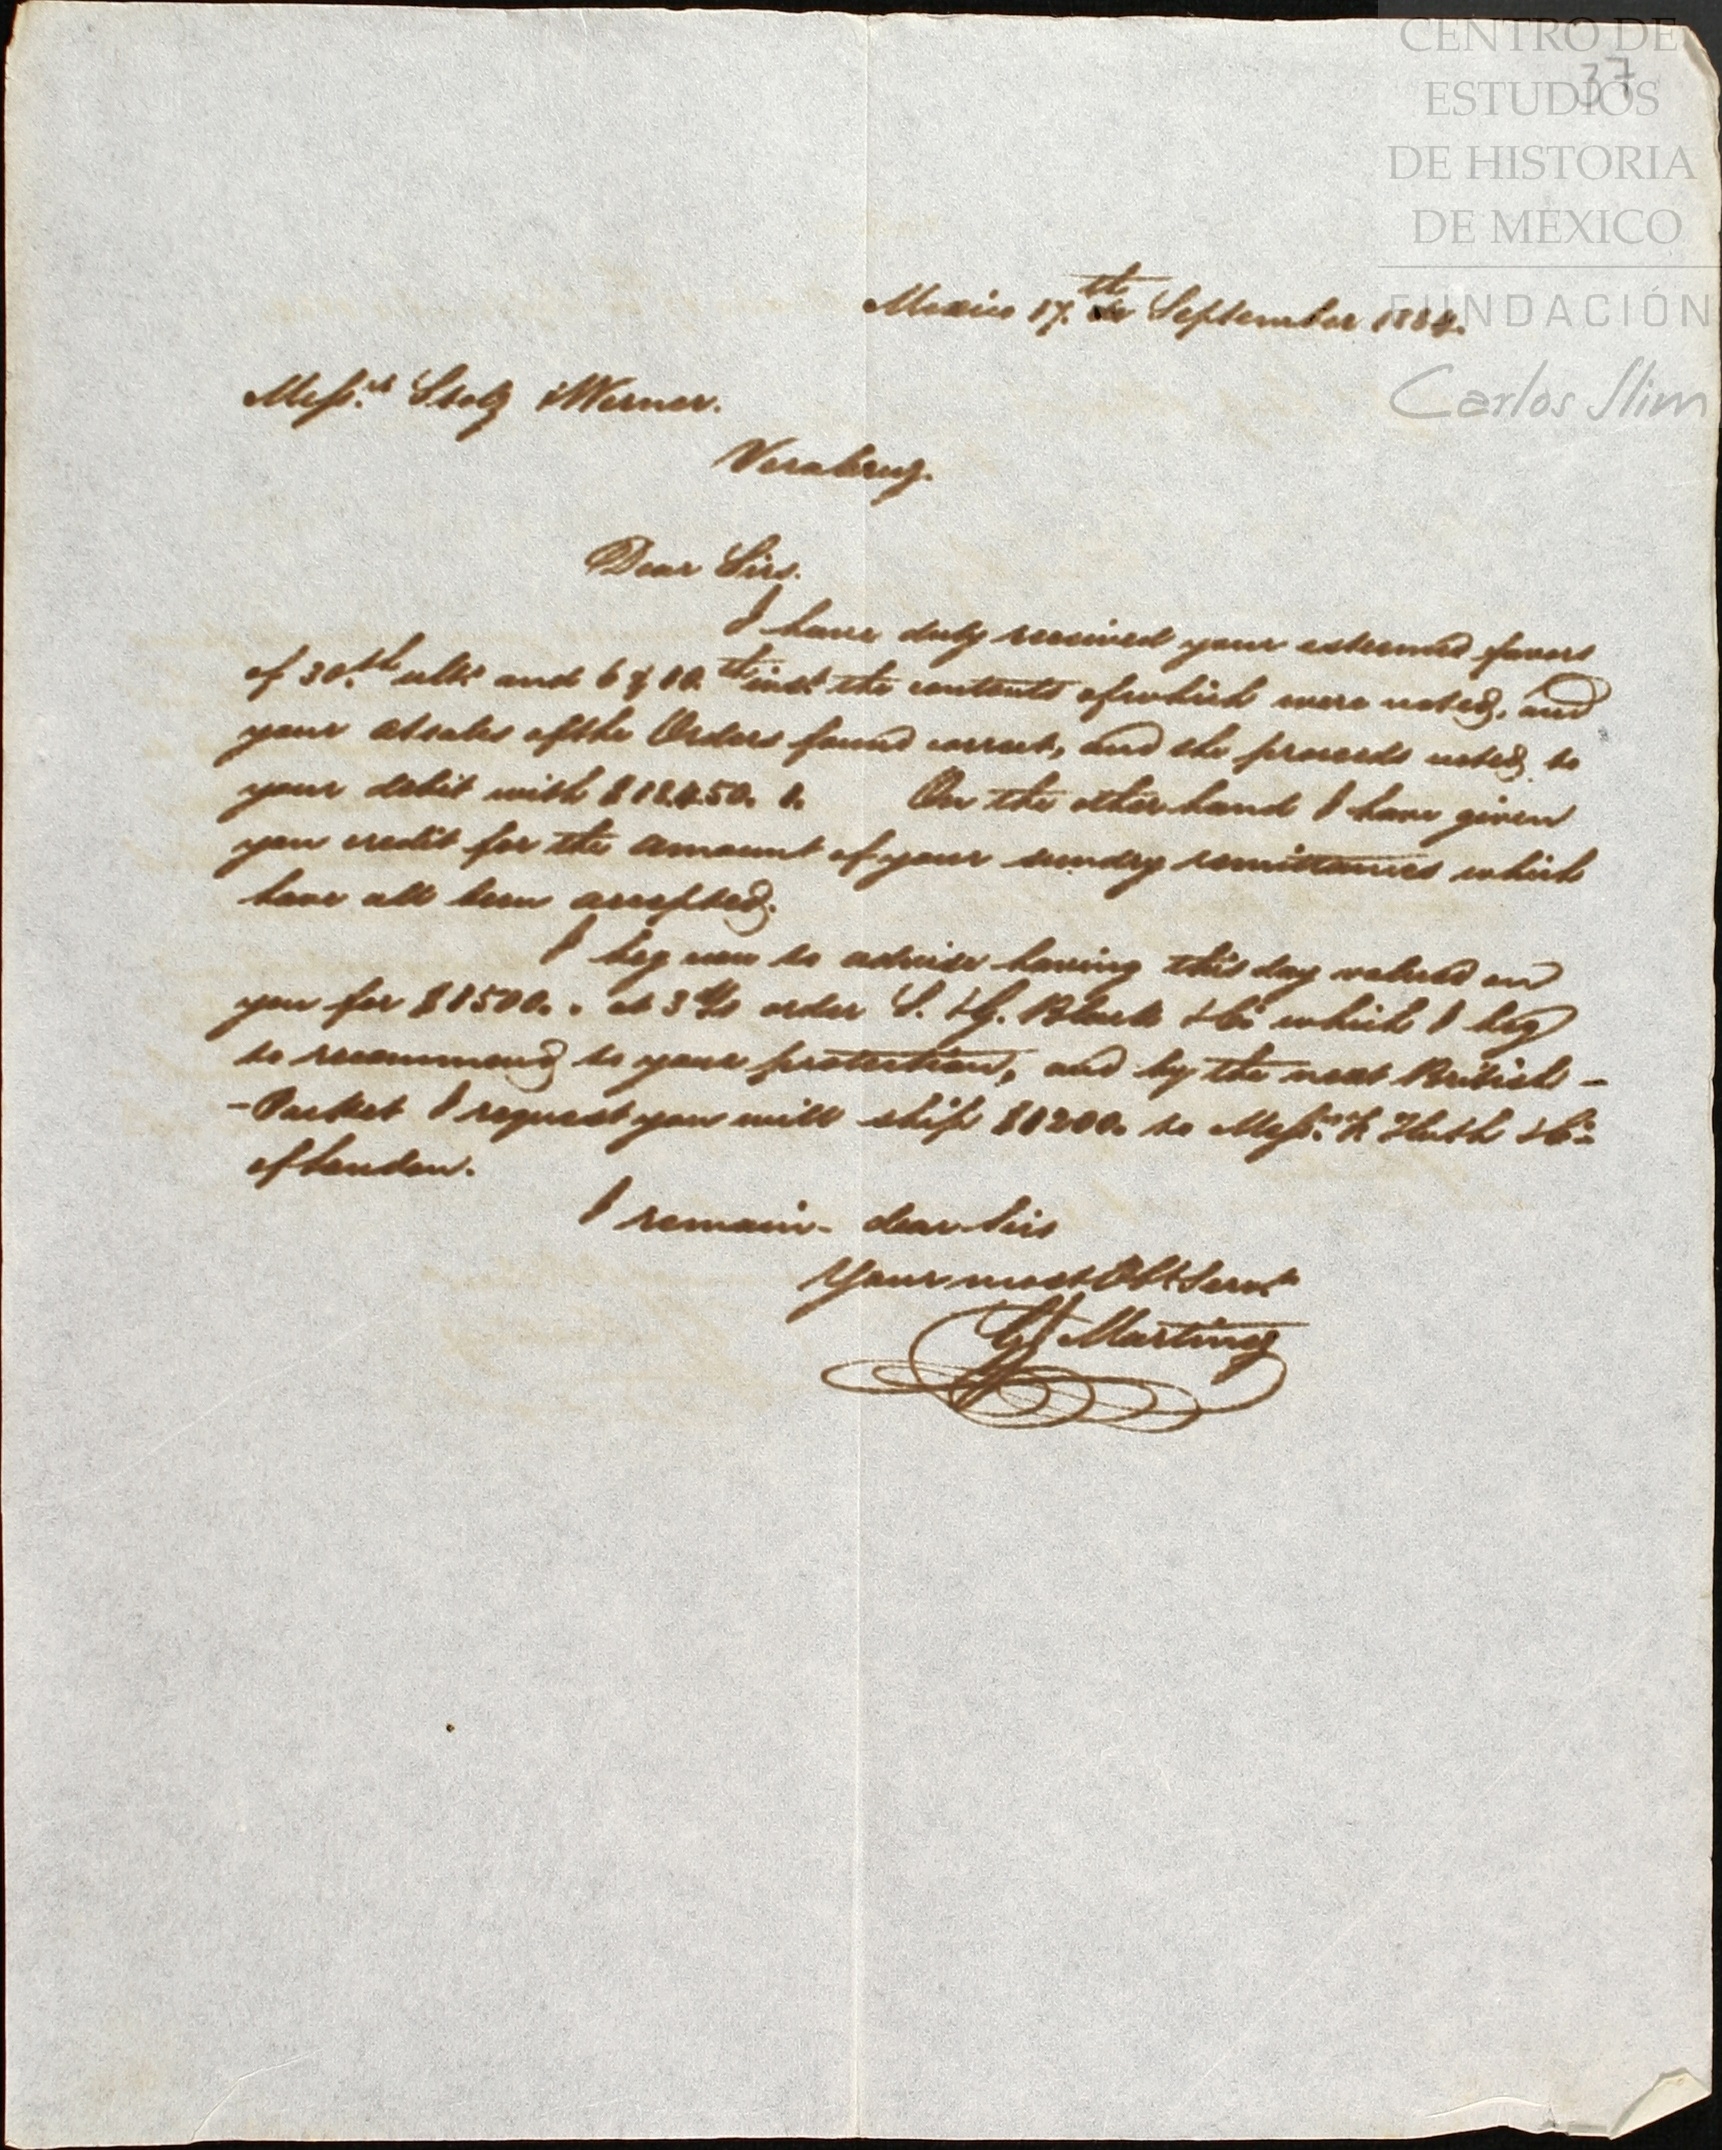 CENTRO DE
ESTUDIOS
DE HISTORIA
DE MÉXICO
FUNDACIÓN
Carlos Slim
37
Mexico 17th September 1834.
Mess.rs Stolz & Werner.
Veracruz.
Dear Sirs.
I have duly received your esteemed favors
of 30.th ult.o and 6 & 10.th inst. the contents of which were noted, and
your a/sales of the Orders found correct, and the proceeds noted to
your debit with $ 12450. 1. On the other hand I have given
you credit for the amount of your sundry remittances which
have all been accepted.
I beg now to advise having this day valued on
you for $ 1500.. at 3 d/s order S. & G. Black & Co which I beg
to recommend to your protection, and by the next British -
- Packet I request you will ship $1200. to Mess.rs F. Huth & Co
of London.
I remain - dear Sirs
Your most Obt Servt
Martinez